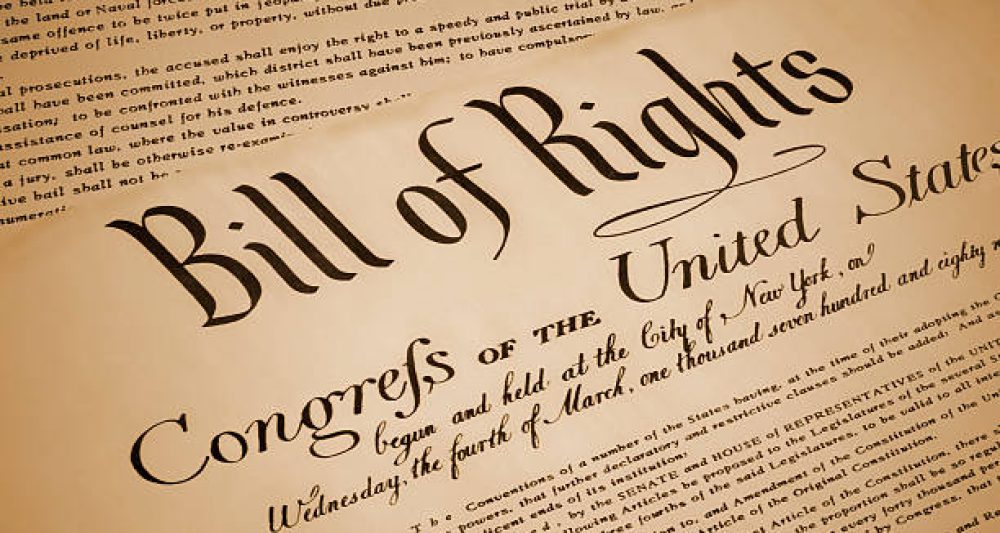 the land or Naval forces
same offence to be twice put in jeopa
deprived of life, liberty, or property, without due pro
al prosecutions, the accused shall enjoy the right to a speedy and public trial by
all have been committed, which district shall have been previously ascertained by law, a
sation; to be confronted with the witnesses against him; to have compulso
assistance of counsel for his defence.
at common law, where the value in controversy shall
a jury, shall be otherwise re-exami
ive bail shall not be
numerati
Bill of Rights
Congreſs OF THE United States
begun and held at the City of New York, on
Wednesday, the fourth of March, one thousand seven hundred and eighty n
The Conventions of a number of the States having, at the time of their adopting the C
powers, that further declaratory and restrictive clauses should be added: And as
ficent ends of its institution:
d, by the SENATE and HOUSE of REPRESENTATIVES of the UNIT
llowing Articles be proposed to the Legislatures of the several S
ree fourths of the said Legislatures, to be valid to all inte
on to, and Amendment of the Constitution of the Uni
Article of the Original Constitution.
t Article of the Constitution, there
the proportion shall be so regu
every forty thousand per
by Congress, that
and Re